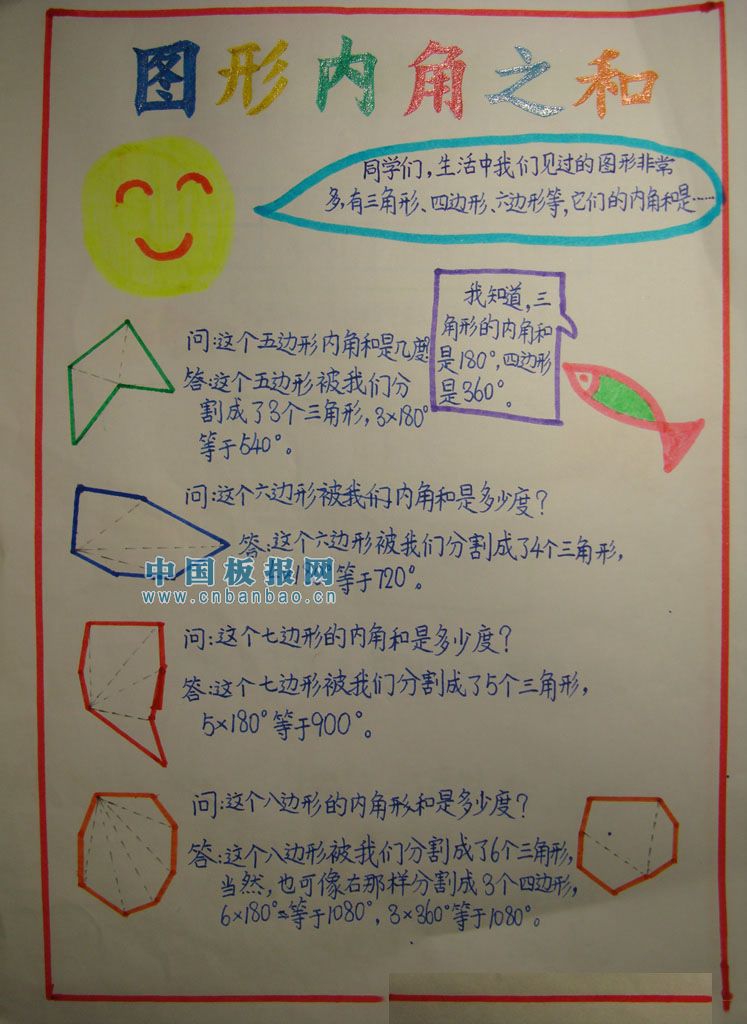 图形内角之和
同学们,生活中我们见过的图形非常
多,有三角形、四边形、六边形等,它们的内角和是……
我知道,三
角形的内角和
是180°,四边形
是360°。
问:这个五边形内角和是几度?
答:这个五边形被我们分
割成了3个三角形,3×180°
等于540°。
问:这个六边形被我们内角和是多少度?
答:这个六边形被我们分割成了4个三角形,
等于720°。
中国板报网
www.cnbanbao.cn
问:这个七边形的内角和是多少度?
答:这个七边形被我们分割成了5个三角形,
5×180°等于900°。
问:这个八边形的内角形和是多少度?
答:这个八边形被我们分割成了6个三角形,
当然,也可像右那样分割成3个四边形,
6×180°=等于1080°,3×360°等于1080°。